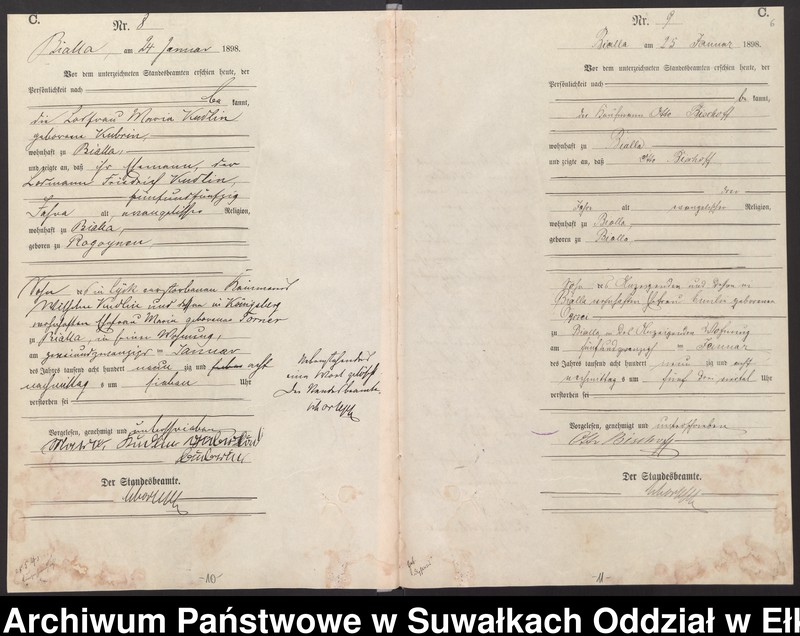 C.
Nr. 8
Bialla, am 24 Januar 1898.
Vor dem unterzeichneten Standesbeamten erschien heute, der
Persönlichkeit nach
be kannt,
die Losfrau Maria Kudlin
geborene
wohnhaft zu Bialla,
und zeigte an, daß ihr Ehemann, der
Losmann Friedrich Kudlin,
fünfundfünfzig
Jahre alt, evangelischer Religion,
wohnhaft zu Bialla,
geboren zu Rogoynen
Sohn des in Lyck verstorbenen
Wilhelm Kudlin und dessen in Königsberg
wohnhaften Ehefrau Maria geborenen
zu Bialla, in seiner Wohnung,
am zweiundzwanzigsten Januar
des Jahres tausend acht hundert neunzig und acht
nachmittags um sieben Uhr
verstorben sei
Nebenstehend
ein Wort gelöscht
Der Standesbeamte.
Vorgelesen, genehmigt und unterschrieben
Maria Kudlin geborene
Der Standesbeamte.
-10-
C.
6
Nr. 9
Bialla am 25 Januar 1898.
Vor dem unterzeichneten Standesbeamten erschien heute, der
Persönlichkeit nach
be kannt,
der Kaufmann Otto Bischoff
wohnhaft zu Bialla
und zeigte an, daß Otto Bischoff
drei
Jahre alt evangelischer Religion,
wohnhaft zu Bialla,
geboren zu Bialla
Sohn des Anzeigenden und dessen in
Bialla wohnhaften Ehefrau geborenen
zu Bialla in des Anzeigenden Wohnung
am fünfundzwanzigsten Januar
des Jahres tausend acht hundert neunzig und acht
nachmittags um fünf drei viertel Uhr
verstorben sei
Vorgelesen, genehmigt und unterschrieben
Otto Bischoff
Der Standesbeamte.
-11-
Archiwum Państwowe w Suwałkach Oddział w Ełk